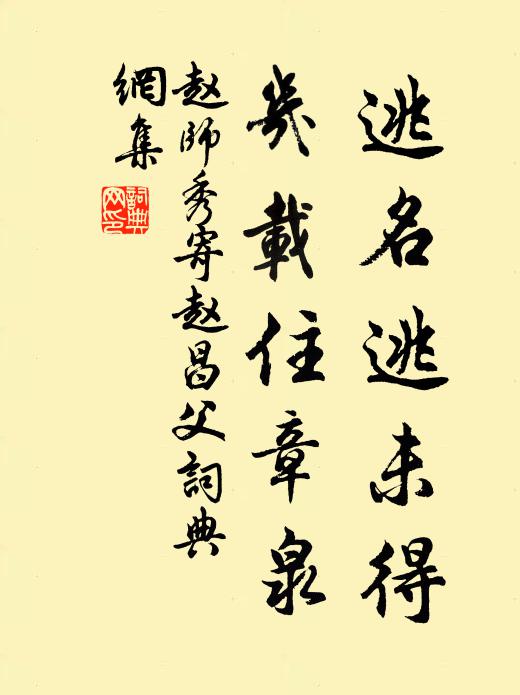 逃名逃未得
幾載住章泉
赵師秀寄赵昌父詞典
網集
詞典
网印